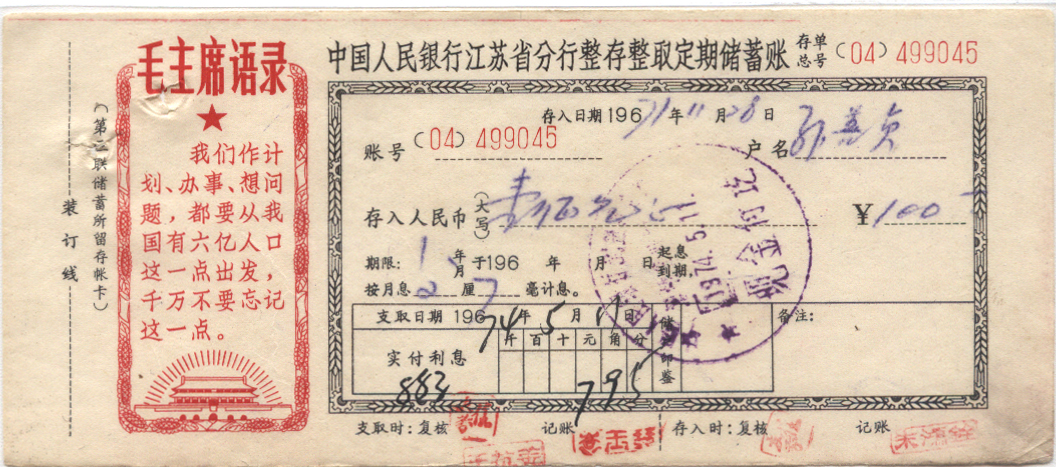 毛主席语录
我们作计
划、办事、想问
题，都要从我
国有六亿人口
这一点出发，
千万不要忘记
这一点。
装订线
(第二联储蓄所留存帐卡)
中国人民银行江苏省分行整存整取定期储蓄账
存单
总号
(04) 499045
存入日期196 71年11月28日
账号 (04) 499045
户名 孙
存入人民币(大写) 壹佰元正
¥100
期限: 1 年月 于196 年 月 日 起息 到期
按月息 2 厘 7 毫计息。
支取日期196 74年5月11日
储 印鉴
备注:
实付利息
千百十元角分
883
795
1974.5.11
支取时: 复核 记账 存入时: 复核 记账